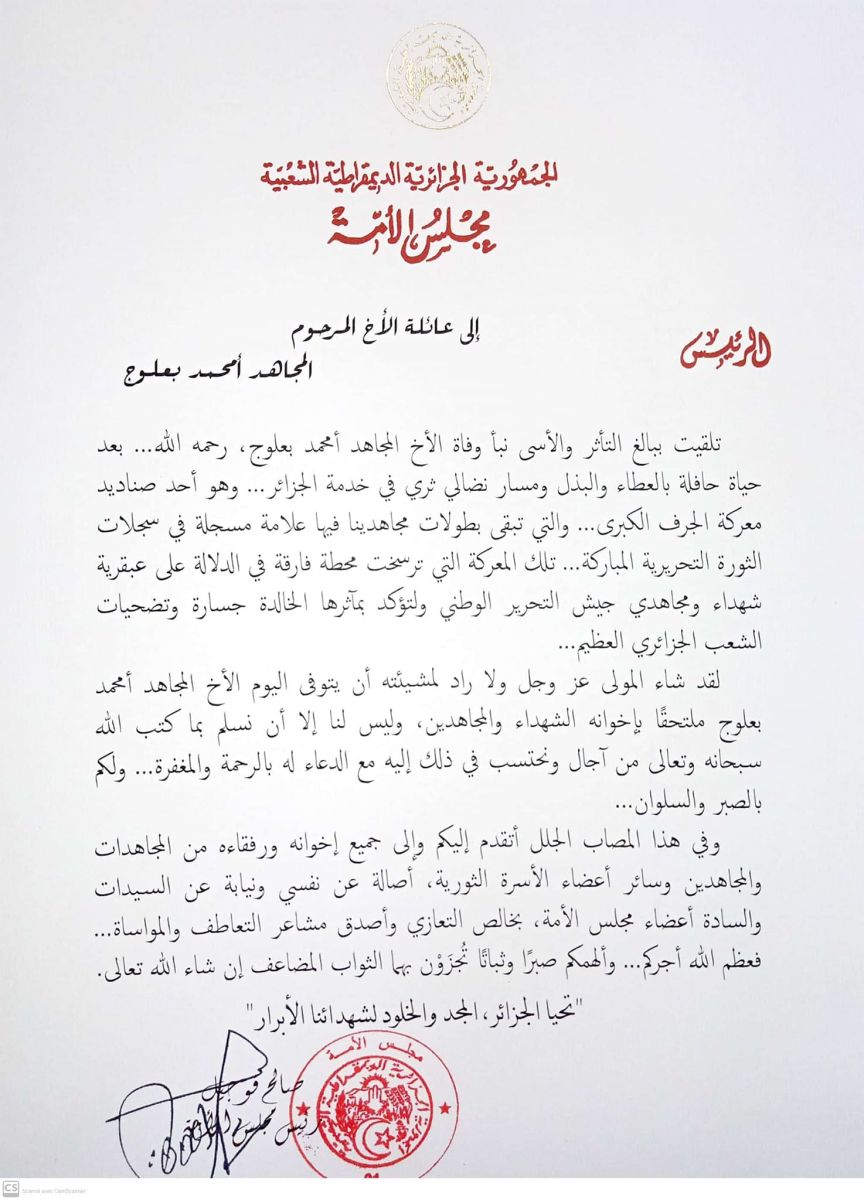 الجمهُوريّة الجزائريّة الديمقراطيّة الشّعبيّة
مجلسُ الأمّة
الرئيس
إلى عائلة الأخ المرحوم
المجاهد أمحمد بعلوج
تلقيت ببالغ التأثر والأسى نبأ وفاة الأخ المجاهد أمحمد بعلوج، رحمه الله... بعد
حياة حافلة بالعطاء والبذل ومسار نضالي ثري في خدمة الجزائر... وهو أحد صناديد
معركة الجرف الكبرى... والتي تبقى بطولات مجاهدينا فيها علامة مسجلة في سجلات
الثورة التحريرية المباركة... تلك المعركة التي ترسخت محطة فارقة في الدلالة على عبقرية
شهداء ومجاهدي جيش التحرير الوطني ولتؤكد بمآثرها الخالدة جسارة وتضحيات
الشعب الجزائري العظيم...
لقد شاء المولى عز وجل ولا راد لمشيئته أن يتوفى اليوم الأخ المجاهد أمحمد
بعلوج ملتحقًا بإخوانه الشهداء والمجاهدين، وليس لنا إلا أن نسلم بما كتب الله
سبحانه وتعالى من آجال ونحتسب في ذلك إليه مع الدعاء له بالرحمة والمغفرة... ولكم
بالصبر والسلوان...
وفي هذا المصاب الجلل أتقدم إليكم وإلى جميع إخوانه ورفقاءه من المجاهدات
والمجاهدين وسائر أعضاء الأسرة الثورية، أصالة عن نفسي ونيابة عن السيدات
والسادة أعضاء مجلس الأمة، بخالص التعازي وأصدق مشاعر التعاطف والمواساة...
فعظم الله أجركم... وألهمكم صبرًا وثباتًا تُجزَوْن بهما الثواب المضاعف إن شاء الله تعالى.
"تحيا الجزائر، المجد والخلود لشهدائنا الأبرار"
مجلس الأمة
الجمهورية الجزائرية الديمقراطية الشعبية
صالح قوجيل
رئيس مجلس الأمة
CS Scanné avec CamScanner